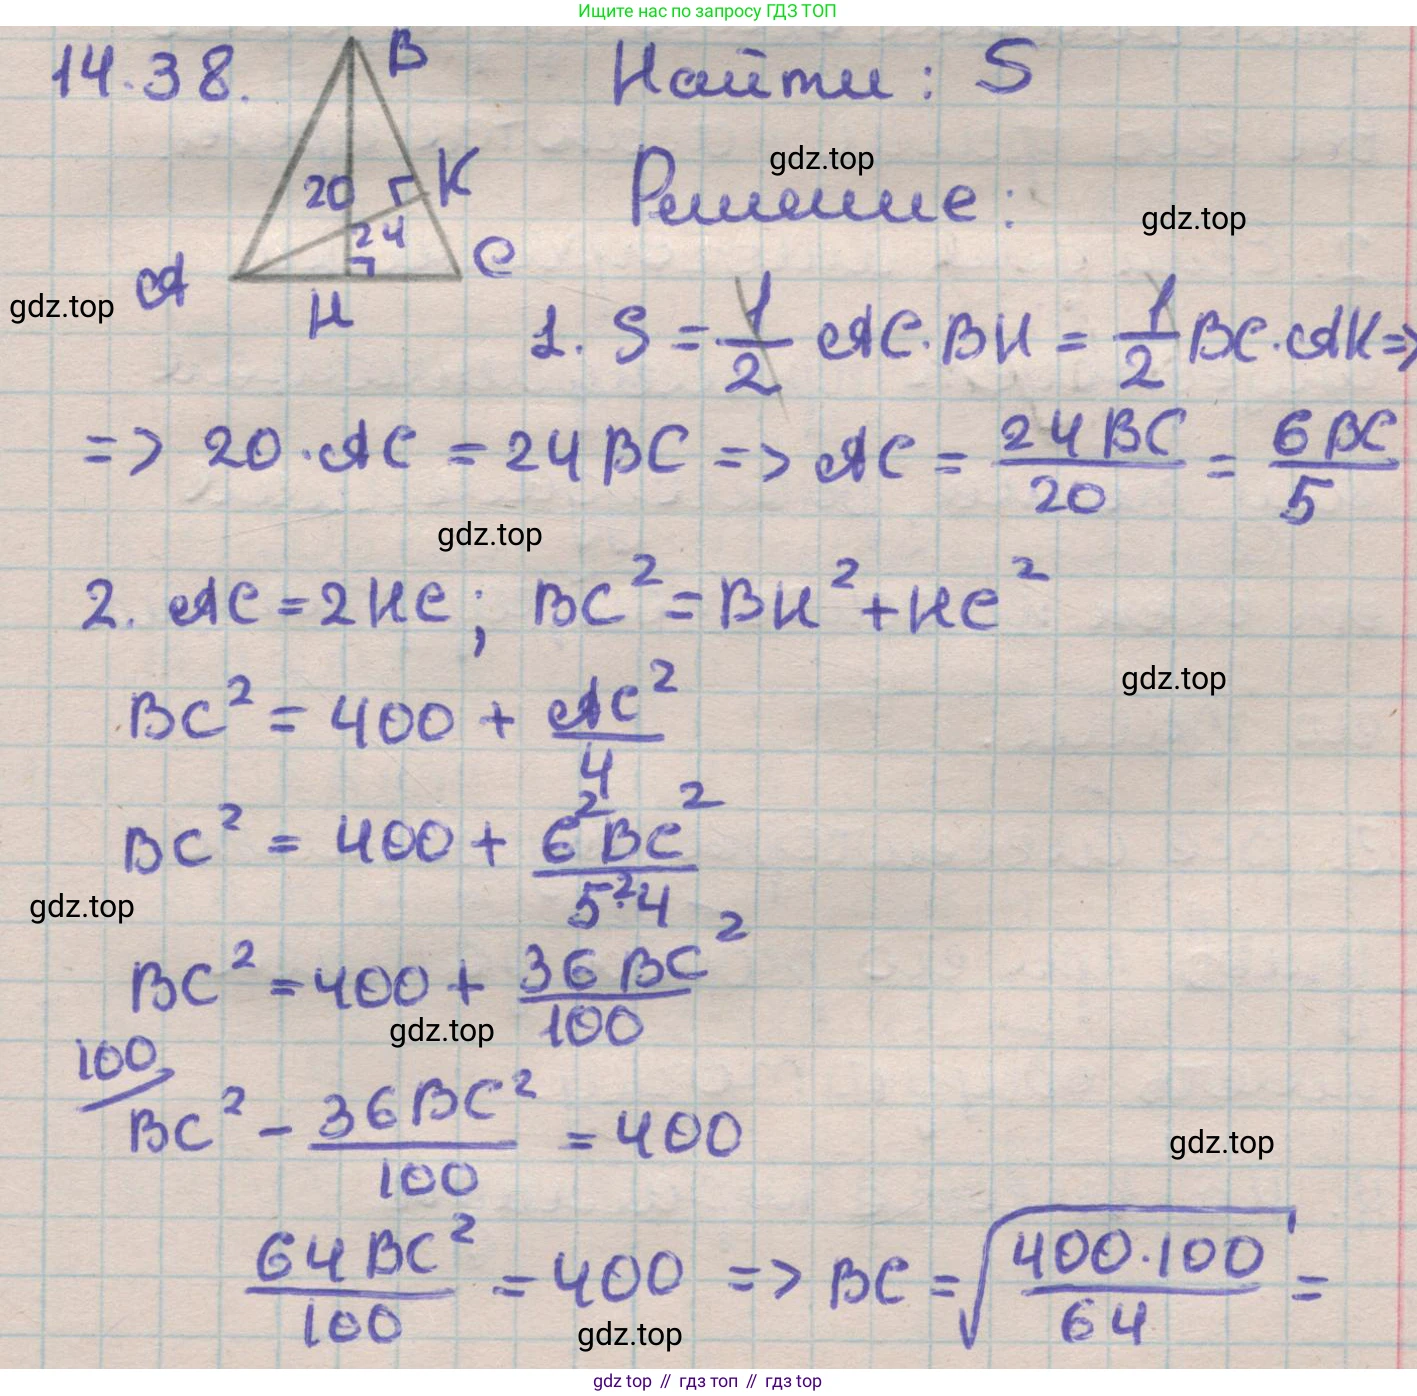 Ищите нас по запросу ГДЗ ТОП
14.38.
B
20
K
24
A
H
C
Найти: S
gdz.top
Решение:
gdz.top
gdz.top
1. S = 1/2 AC · BH = 1/2 BC · AK =>
=> 20 · AC = 24 BC => AC = 24 BC/20 = 6 BC/5
gdz.top
2. AC = 2HC; BC² = BH² + HC²
gdz.top
BC² = 400 + AC²/4
BC² = 400 + 6²BC²/5²·4
gdz.top
BC² = 400 + 36 BC²/100
gdz.top
100/ BC² - 36 BC²/100 = 400
gdz.top
64 BC²/100 = 400 => BC = √400·100/64 =
gdz.top
gdz top // гдз топ // гдз top